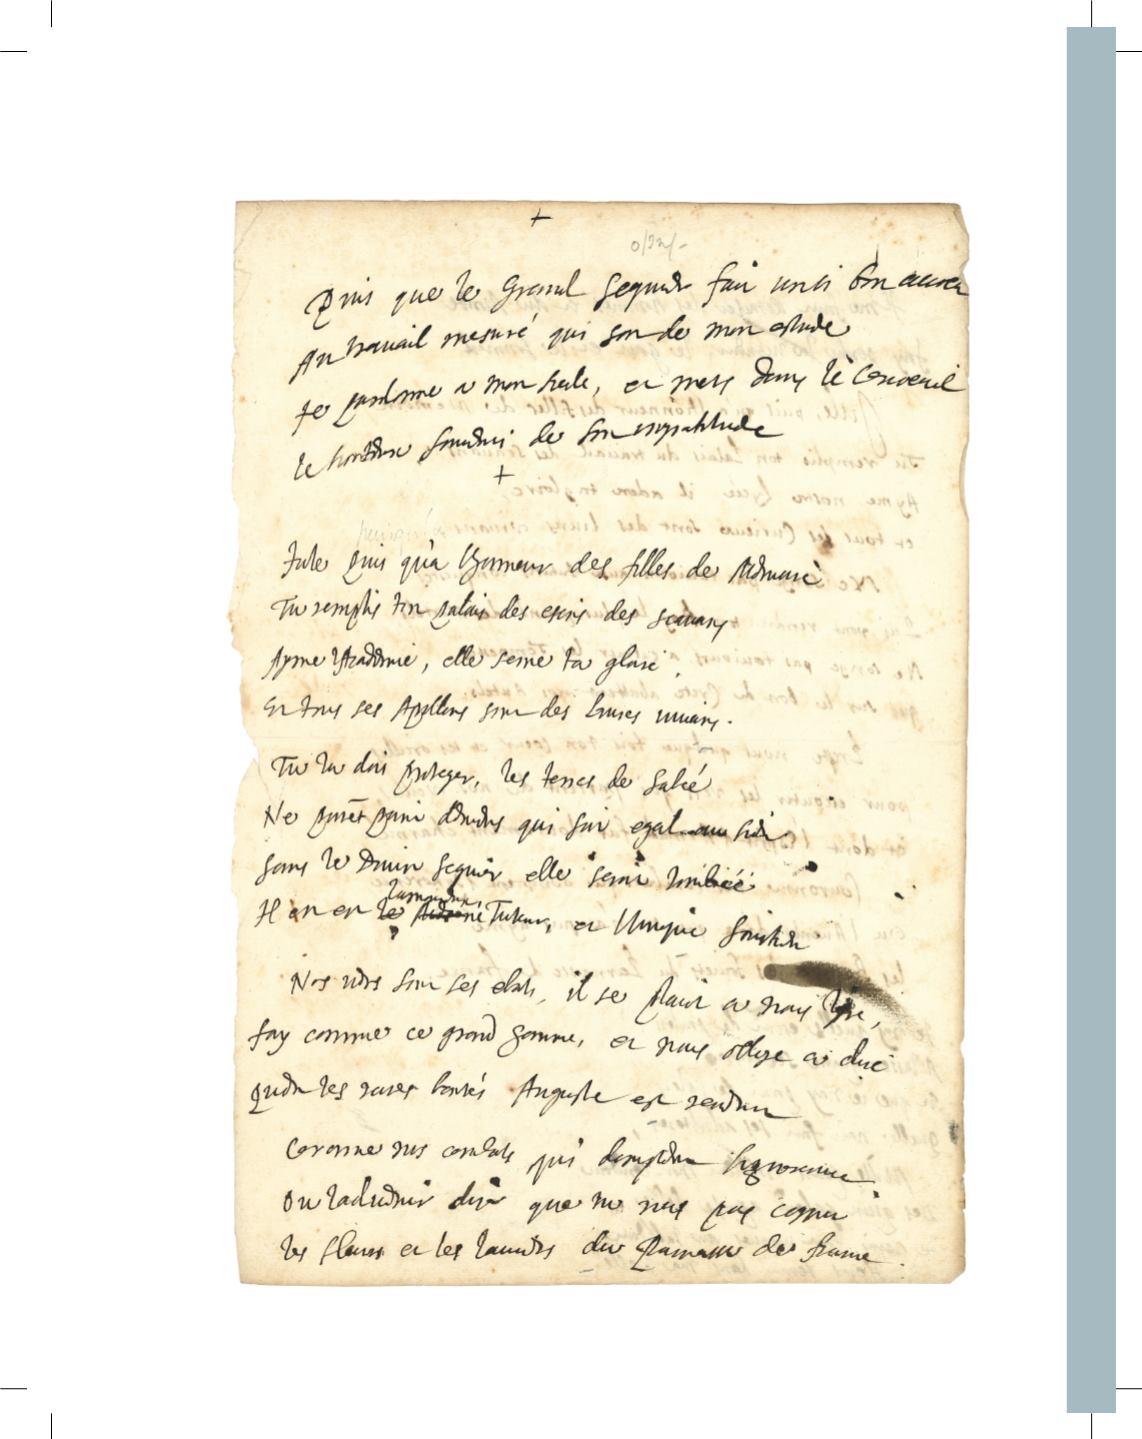 +
Puis que le Grand Seguier fait un si bon accueil
Au travail mesuré qui sort de mon estude
Je pardonne a mon siecle, et mets dans le Cercueil
le honteux souvenir de son ingratitude
+
Jule puis qu'a lhonneur des filles de Memoire
Tu remplis ton palais des escris des scavans
Ayme lAcademie, elle seme ta gloire
Et tous ses Apollons sont des livres vivans.
Tu la dois proteger, les terres de Galée
Ne qui soit egal au sien.
sans le Divin Seguier elle seroit
Il en est le Tuteur, et lUnique soustien
Nos vers sont ses ebats, il se plaist a nous lire,
fay comme ce grand homme, et nous oblige a dire
Qu'en tes rares bontés Auguste est
Coronne nos combats qui domptent lignorance
Ou ladvenir dira que tu n'eus pas cognu
les fleurs et les lauriers du Parnasse de france.